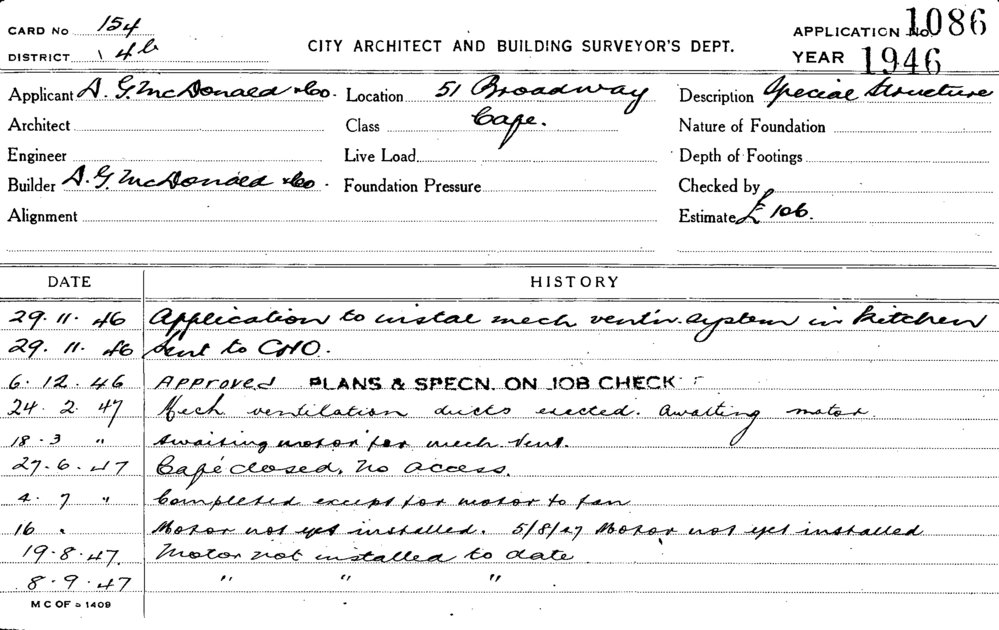 CARD No 154
DISTRICT 4b
CITY ARCHITECT AND BUILDING SURVEYOR'S DEPT.
APPLICATION No. 1086
YEAR 1946
Applicant A. G. McDonald & Co. Location 51 Broadway Description Special Structure
Architect Class Cafe. Nature of Foundation
Engineer Live Load Depth of Footings
Builder A. G. McDonald & Co. Foundation Pressure Checked by
Alignment Estimate £106.
DATE HISTORY
29. 11. 46 Application to instal mech ventn. system in kitchen
29. 11. 46 Sent to CHO.
6. 12. 46 Approved PLANS & SPECN. ON JOB CHECK
24. 2. 47 Mech ventilation ducts erected. Awaiting motor.
18. 3 " Awaiting motor for mech. vent.
27. 6. 47 Café closed, no access.
4. 7 " Completed except for motor to fan
16 " Motor not yet installed. 5/8/47 Motor not yet installed
19. 8. 47. Motor not installed to date
8. 9. 47 " " "
M C OF 1409